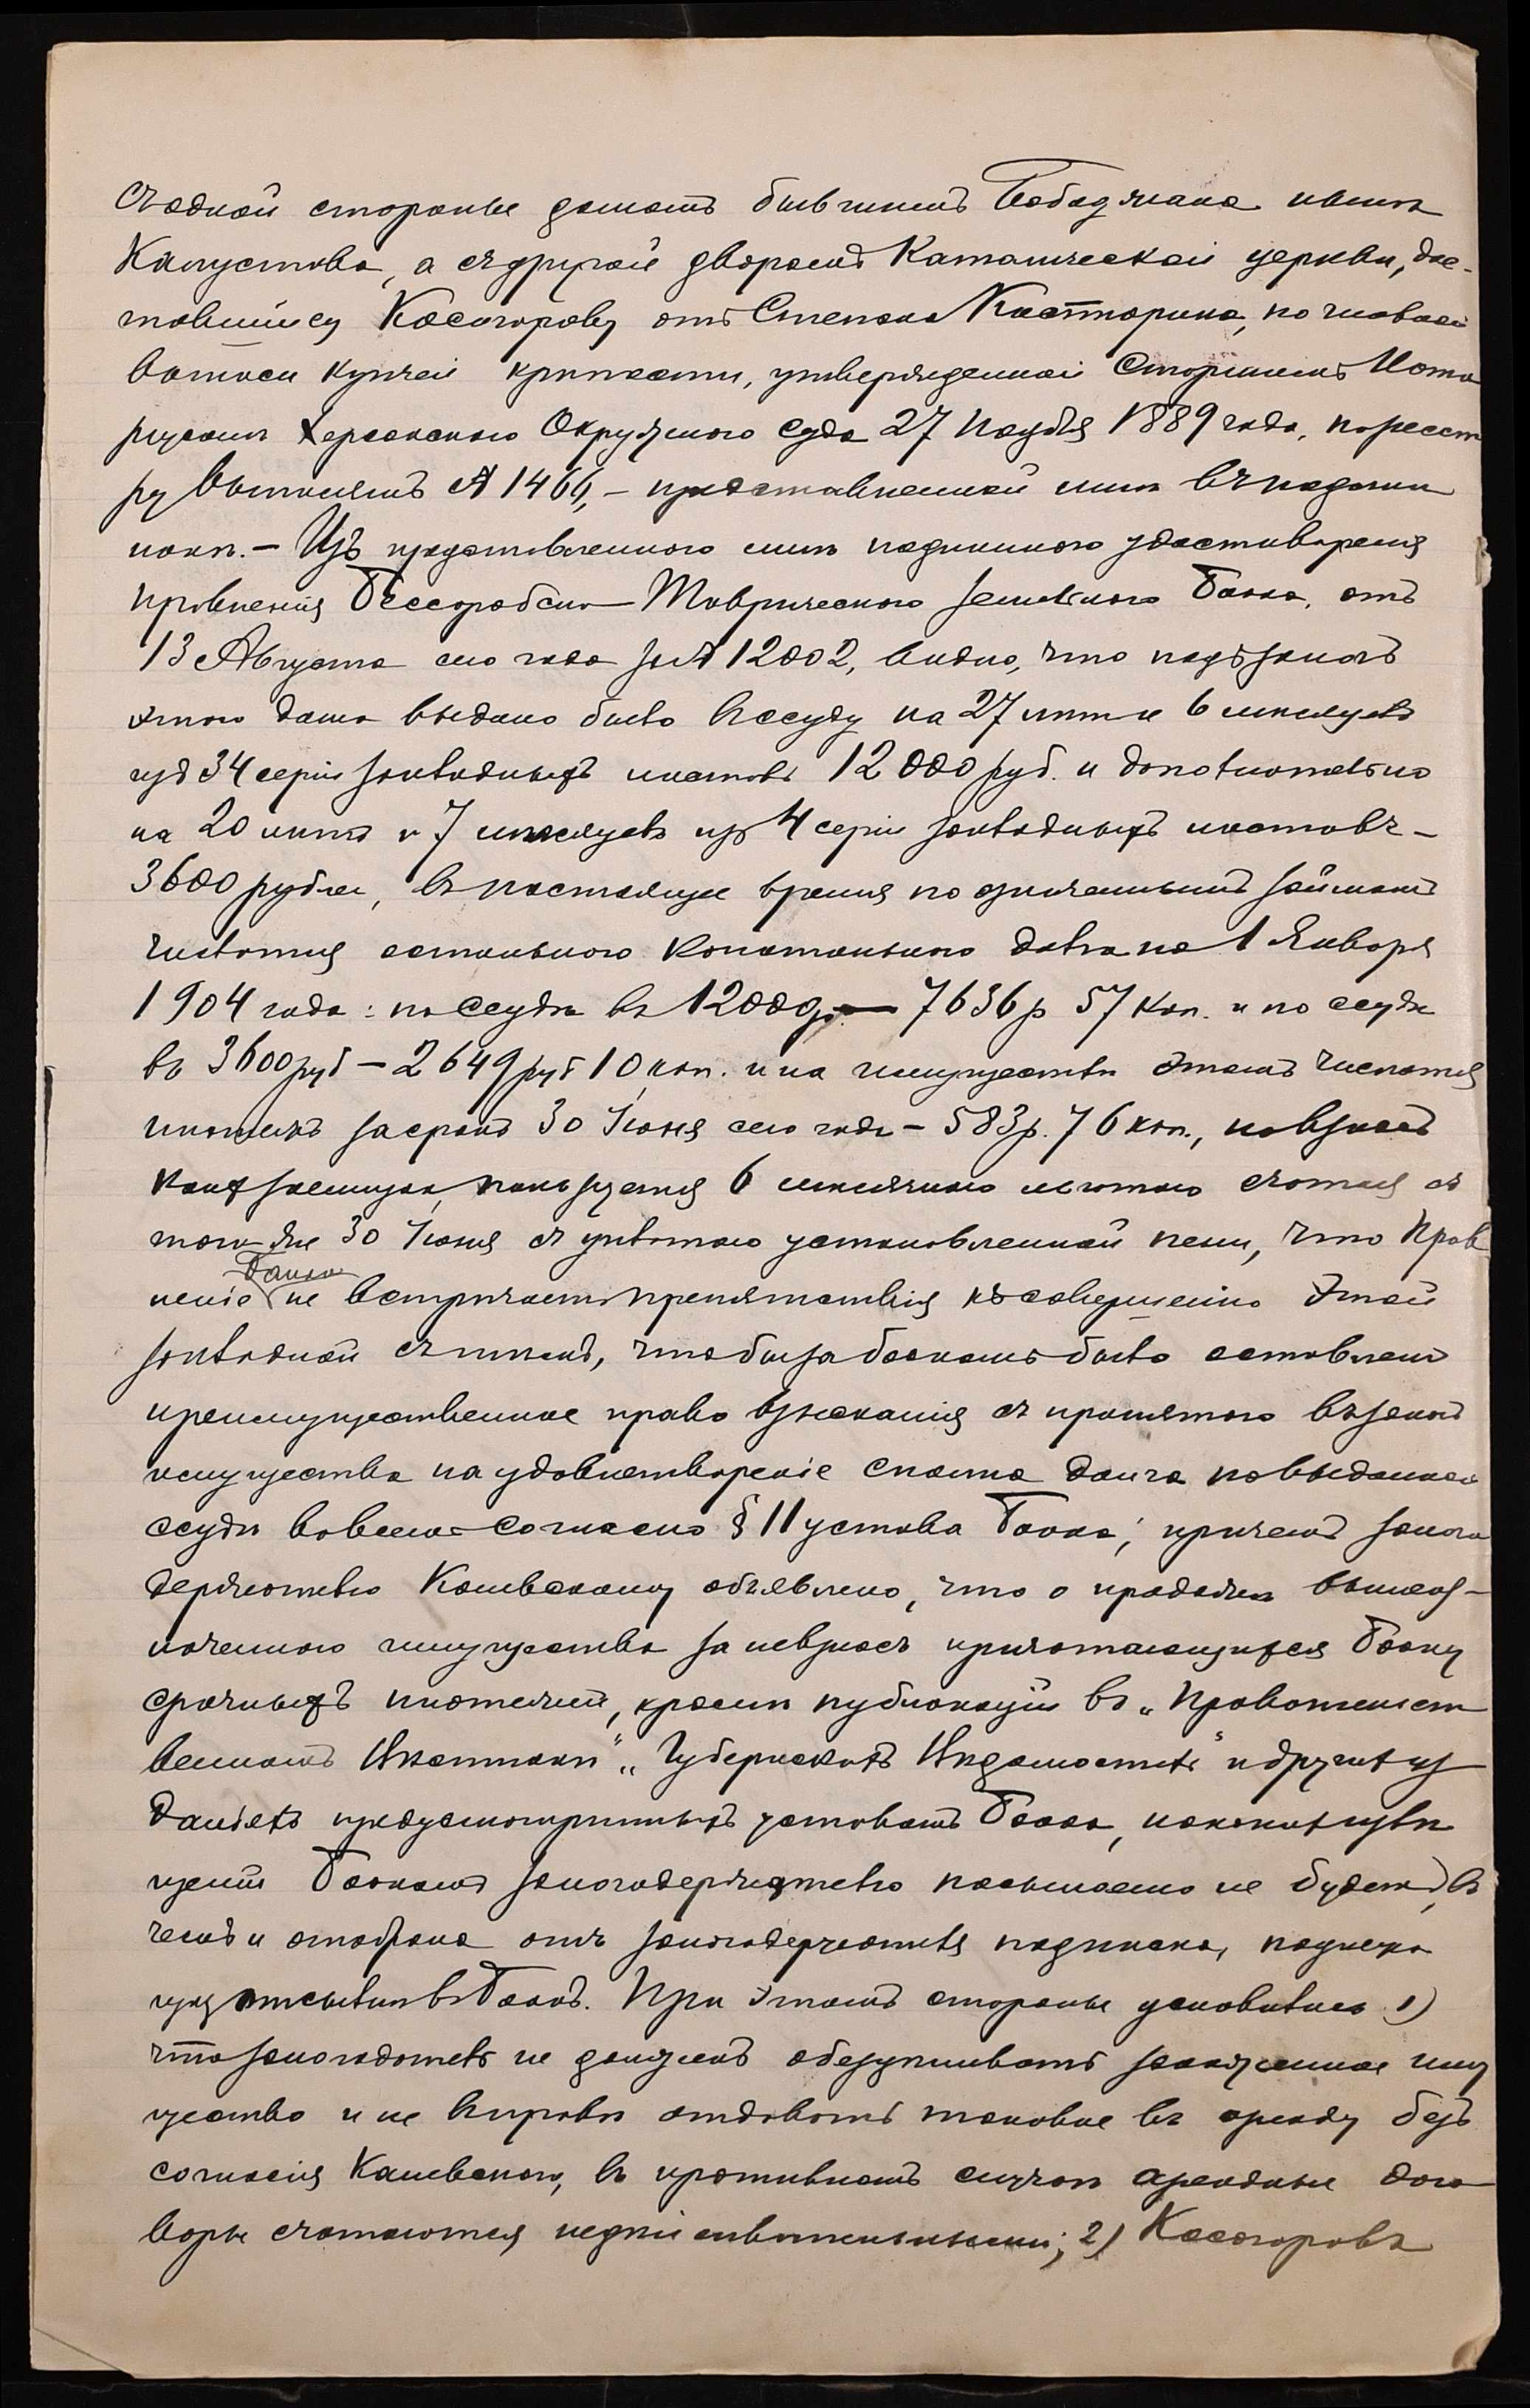 съ одной стороны домомъ бывшимъ Бабаджана нынѣ
Капустова, а съ другой дворомъ Католической церкви, дос-
тавшійся Косогорову отъ Степана Касторина, по главной
выписи купчей крѣпости, утвержденной Старшимъ Нота
ріусомъ Херсонскаго Окружнаго Суда 27 Ноября 1889 года, по реест
ру выписямъ № 1466, – представленной мнѣ въ подлин
никѣ. – Изъ представленнаго мнѣ подлиннаго удостовѣренія
Правленія Бессарабско-Таврическаго Земельнаго Банка, отъ
13 Августа сего года за № 12002, видно, что подъ залогъ
этого дома выдано было въ ссуду на 27 лѣтъ и 6 мѣсяцевъ
изъ 34 серіи закладныхъ листовъ 12000 руб. и дополнительно
на 20 лѣтъ и 7 мѣсяцевъ изъ 4 серіи закладныхъ листовъ –
3600 рублей, въ настоящее время по означеннымъ займамъ
числится остального капитальнаго долга на 1 Января
1904 года: по ссудѣ въ 12000 р. – 7636 р 57 коп. и по ссудѣ
въ 3600 руб – 2649 руб 10 коп. и на имуществѣ этомъ числится
платежъ за срокъ 30 Іюня сего года – 583 р. 76 коп., на взносъ
коихъ заемщикъ пользуется 6 мѣсячною льготою считая съ
того же 30 Іюня съ уплатою установленной пени, что Прав
Банка
леніе не встрѣчаетъ препятствія къ совершенію этой
закладной съ тѣмъ, чтобы за банкомъ было оставлено
преимущественное право взысканія съ принятаго въ залогъ
имущества на удовлетвореніе сполна долга по выданной
ссудѣ во всемъ согласно § 11 устава Банка; причемъ залого
держателю Камвскому объявлено, что о продажѣ вышеоз-
наченнаго имущества за невзносъ причитающихся Банку
срочныхъ платежей, кромѣ публикацій въ „Правительст
венномъ Вѣстникѣ" „Губернскихъ Вѣдомостяхъ" и другихъ из
даніяхъ предусмотрѣнныхъ уставомъ Банка, никакихъ извѣ
щеній Банкомъ залогодержателю посылаемо не будетъ, въ
чемъ и отобрана отъ залогодержателя подписка, подлежа
щая отсылкѣ въ Банкъ. При этомъ стороны условились 1)
что залогодатель не долженъ обезцѣнивать заложенное иму
щество и не вправѣ отдавать таковое въ аренду безъ
согласія Камвскаго, въ противномъ случаѣ арендные дого
воры считаются недѣйствительными; 2) Косогоровъ